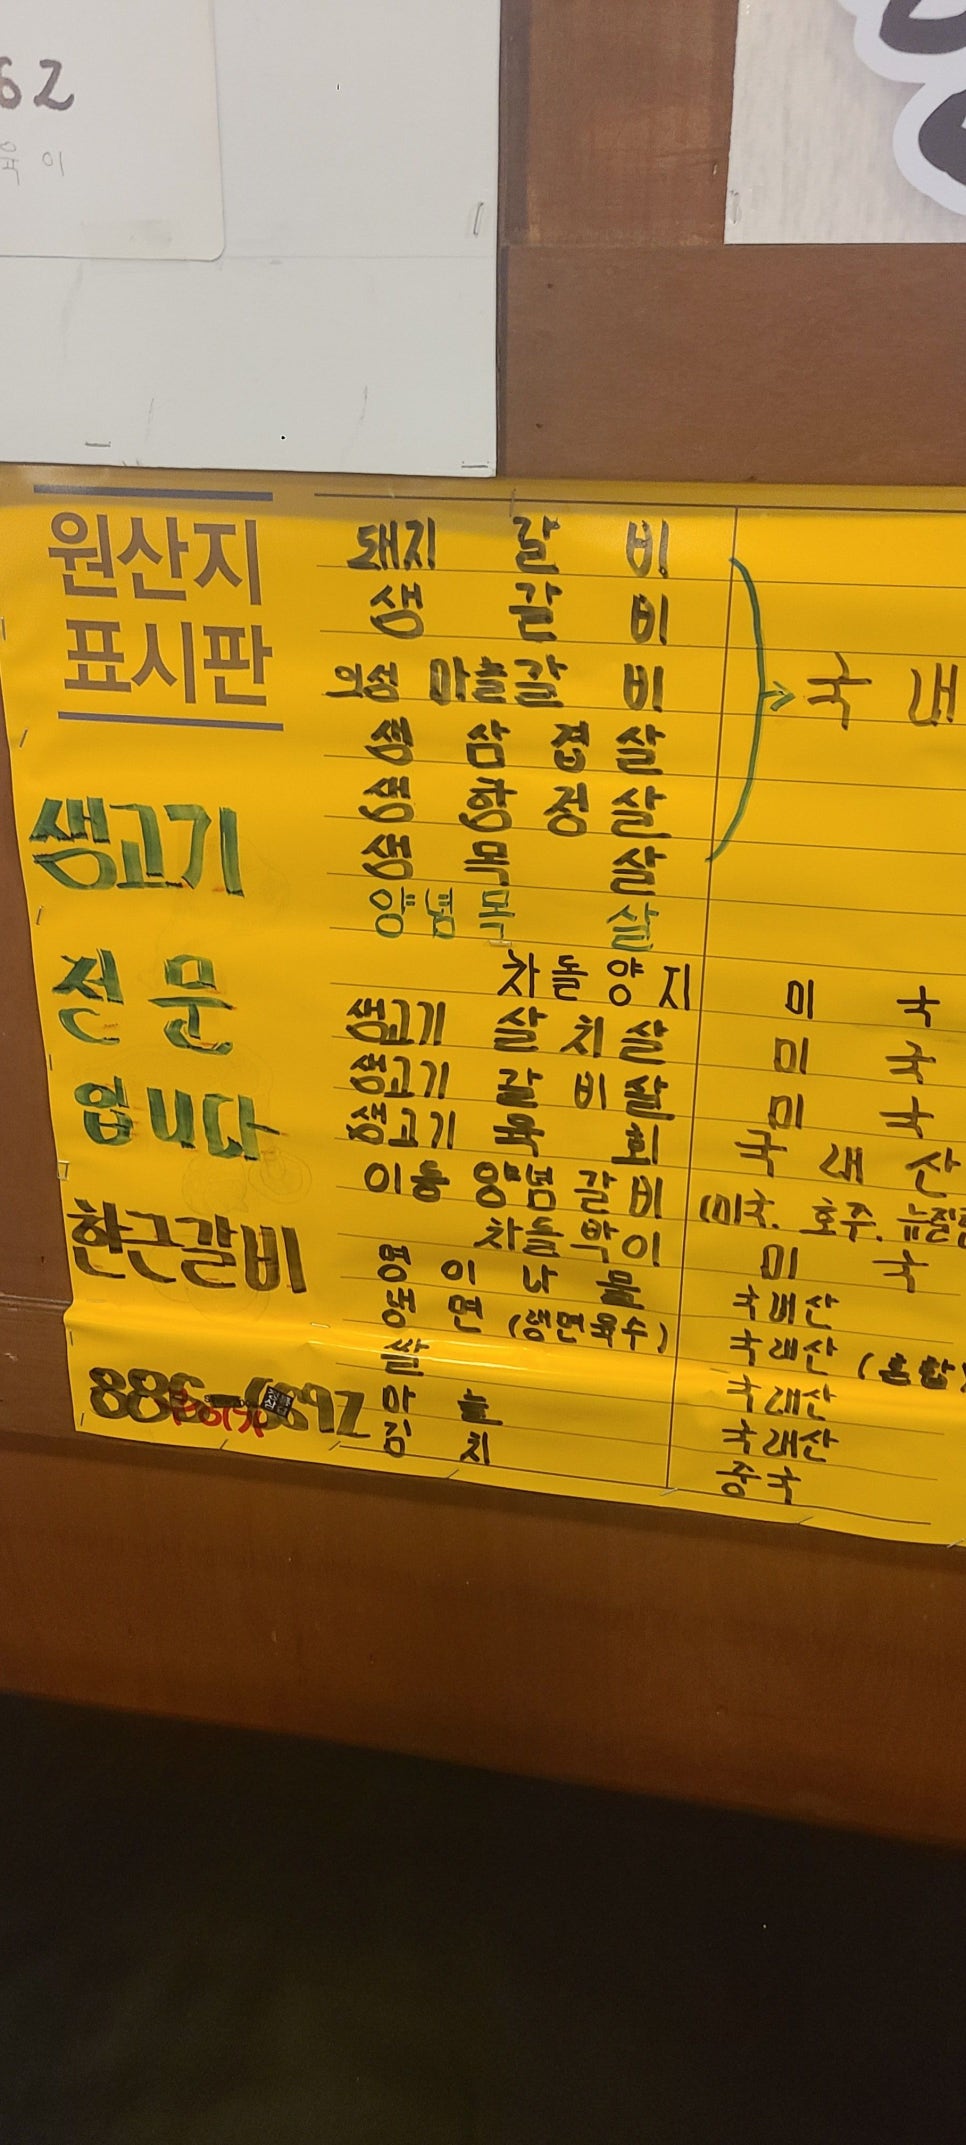 62
육이
원산지
표시판
생고기
전문
입니다
한근갈비
돼지 갈비
생 갈비
의성 마늘갈비
생 삼겹살
생 항정살
생 목살
양념목살
국내
차돌양지 미국
생고기 살치살 미국
생고기 갈비살 미국
생고기 육회 국내산
이동 양념갈비 (미국. 호주. 뉴질
차돌박이 미국
영이나물 국내산
냉면 (냉면육수) 국내산 (혼합)
쌀 국내산
마늘 국내산
김치 중국